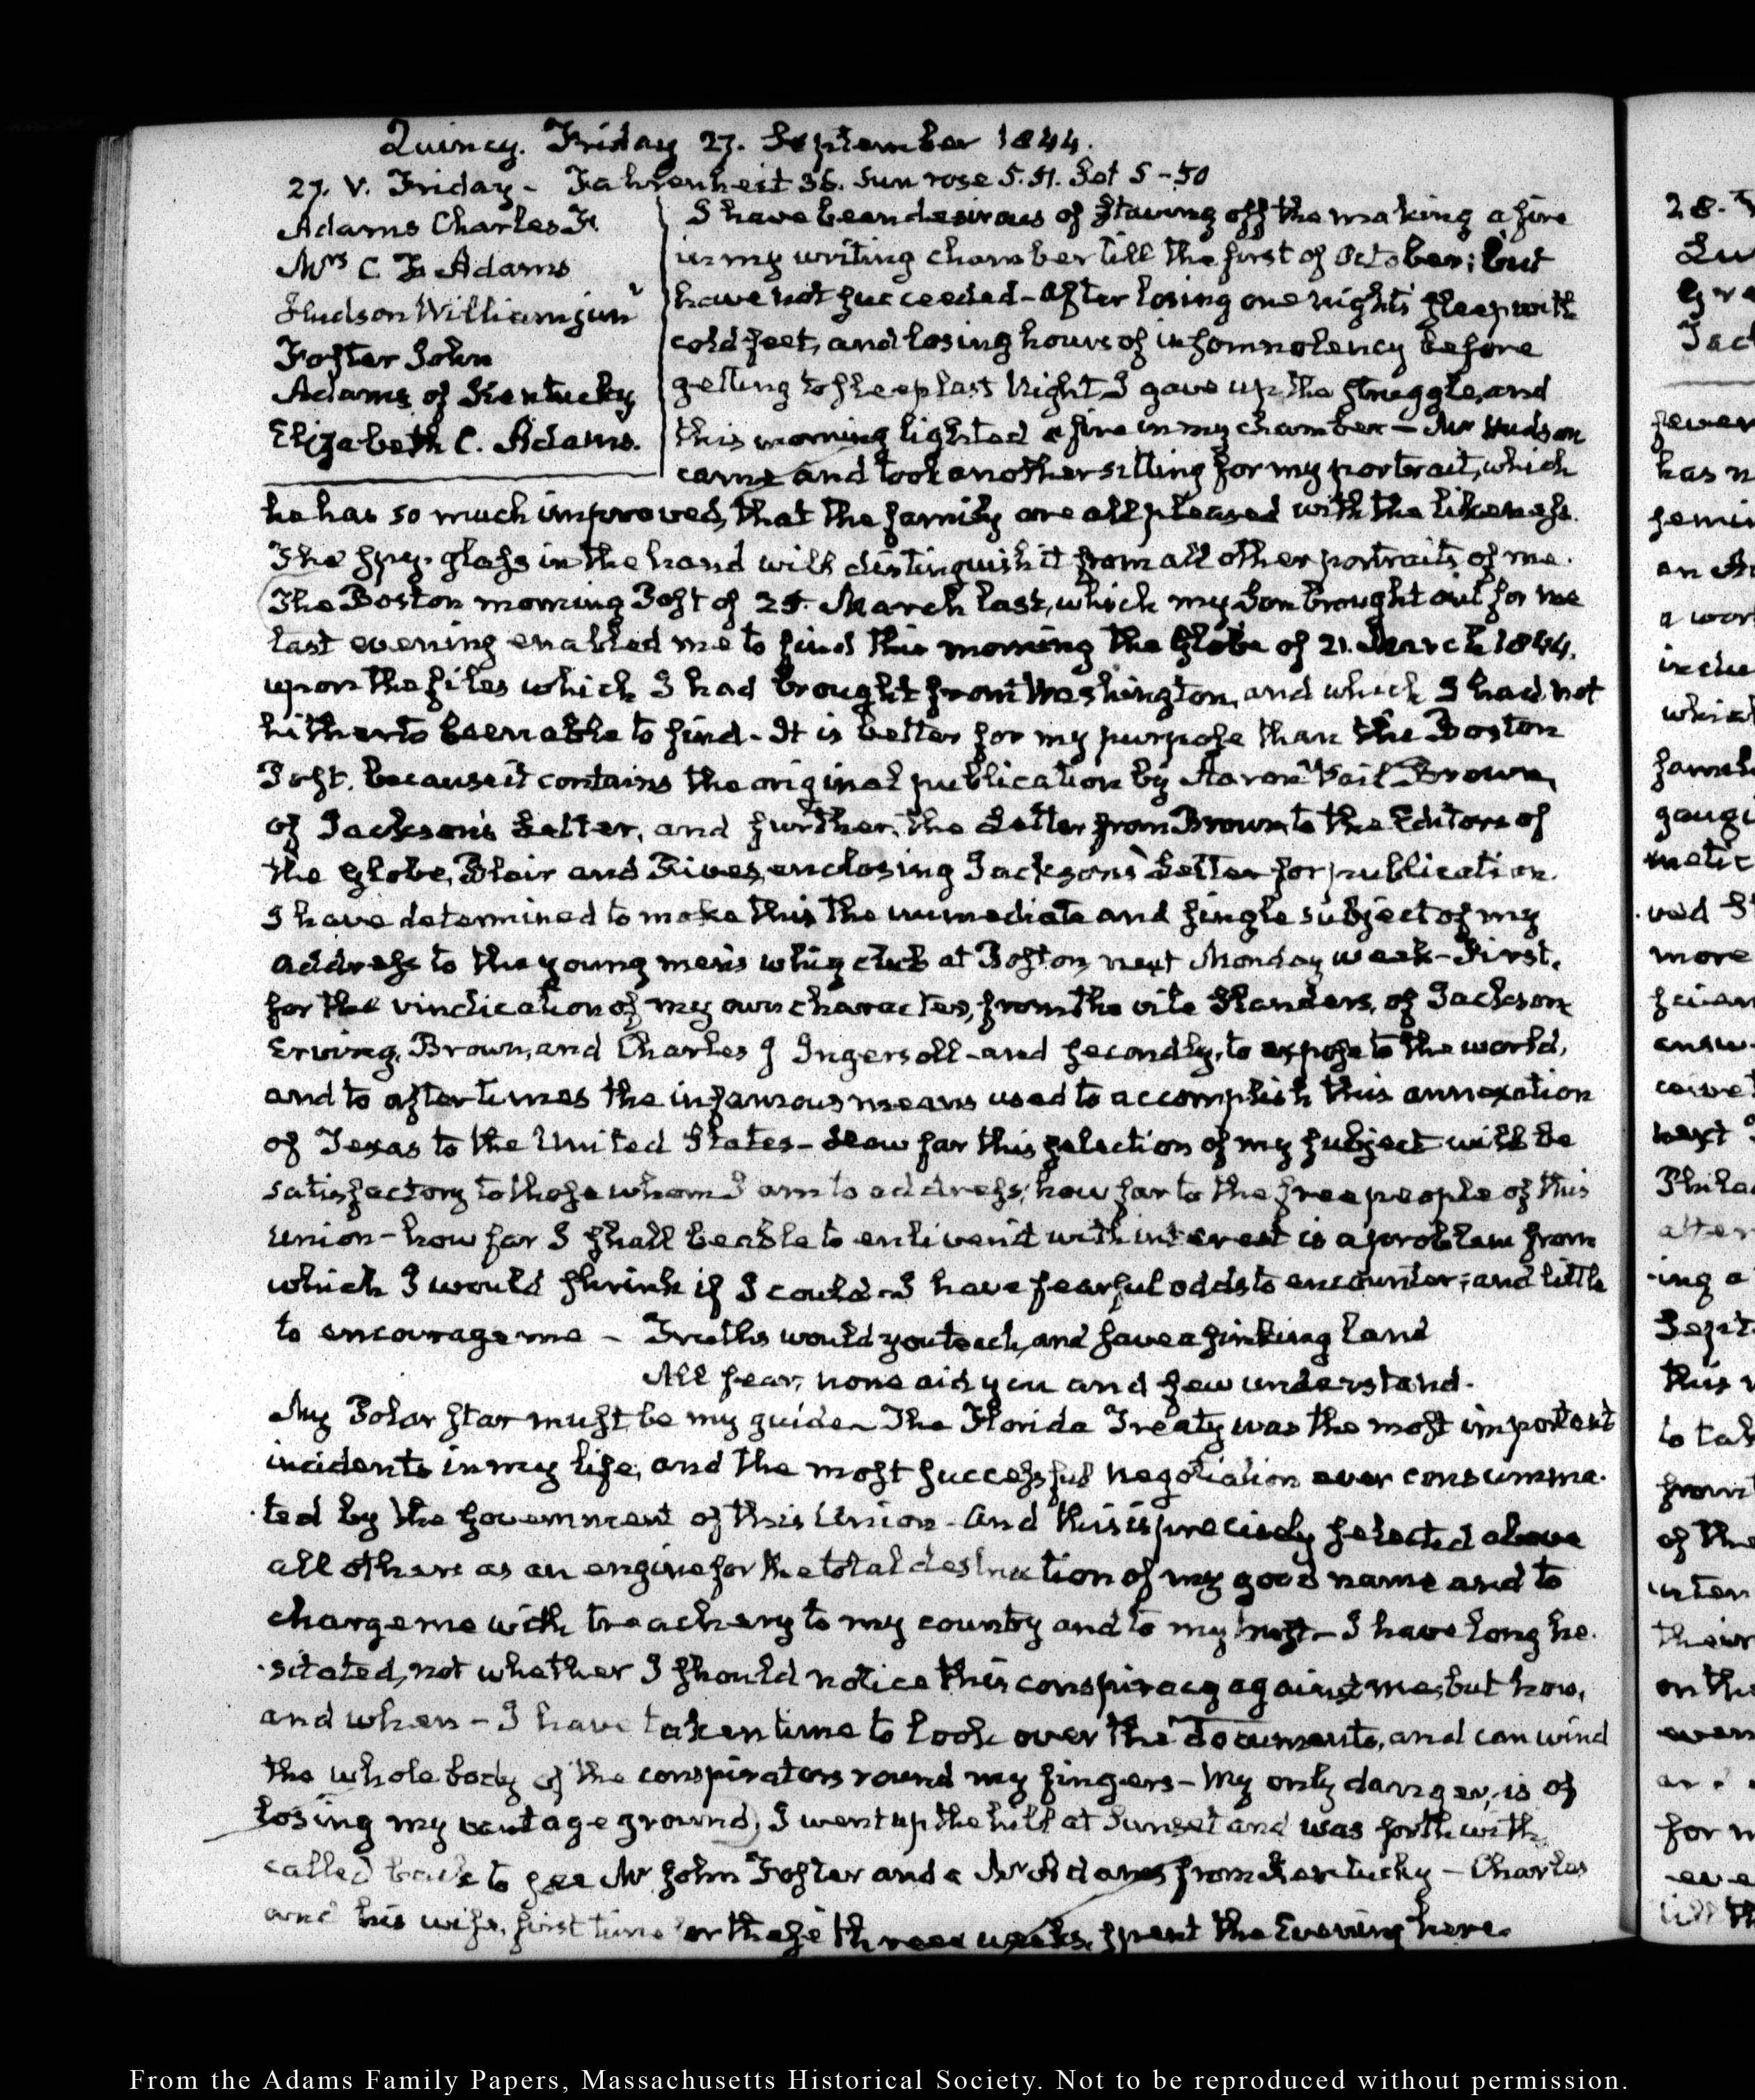 Quincy. Friday 27. September 1844.
27. V. Friday - Fahrenheit 36. Sun rose 5.51. Set 5-50
Adams Charles F.
Mrs C. F. Adams
Hudson William junr
Foster John
Adams of Kentucky
Elizabeth C. Adams.
I have been desirous of staving off the making a fire
in my writing chamber till the first of October; but
have not succeeded - After losing one night's sleep with
cold feet, and losing hours of insomnolency before
getting to sleep last Night, I gave up the struggle, and
this morning lighted a fire in my chamber - Mr Hudson
came and took another sitting for my portrait, which
he has so much improved, that the family are all pleased with the likeness.
The spy-glass in the hand will distinguish it from all other portraits of me.
The Boston morning Post of 25. March last, which my Son brought out for me
last evening enabled me to find this morning the Globe of 21. March 1844.
upon the files which I had brought from Washington, and which I had not
hitherto been able to find - It is better for my purpose than the Boston
Post. because it contains the original publication by Aaron Vail Brown,
of Jackson's Letter, and further, the Letter from Brown to the Editors of
the Globe, Blair and Rives, enclosing Jackson's Letter for publication.
I have determined to make this the immediate and single subject of my
address to the young men's whig club at Boston, next Monday week - First.
for the vindication of my own character, from the vile Slanders, of Jackson
Erving, Brown, and Charles J Ingersoll - and secondly, to expose to the world,
and to after times the infamous means used to accomplish this annexation
of Texas to the United States - How far this selection of my subject will be
satisfactory to those whom I am to address; how far to the free people of this
Union - how far I shall be able to enliven it with interest is a problem from
which I would shrink if I could - I have fearful odds to encounter; and little
to encourage me - Truths would you teach, and save a sinking land
All fear, none aid you and few understand.
My Polar Star must be my guide - The Florida Treaty was the most important
incidents in my life, and the most successful negotiation ever consumma-
ted by the government of this Union - And this is precisely selected above
all others as an engine for the total destruction of my good name and to
charge me with treachery to my country and to my trust - I have long he-
sitated, not whether I should notice this conspiracy against me, but how,
and when - I have taken time to look over the Documents, and can wind
the whole body of the conspirators round my fingers - My only danger, is of
losing my vantage ground, I went up the hill at Sunset and was forthwith
called back to see Mr John Foster and a Mr Adams from Kentucky - Charles
and his wife, first time for these three weeks, spent the Evening here.
28.
From the Adams Family Papers, Massachusetts Historical Society. Not to be reproduced without permission.